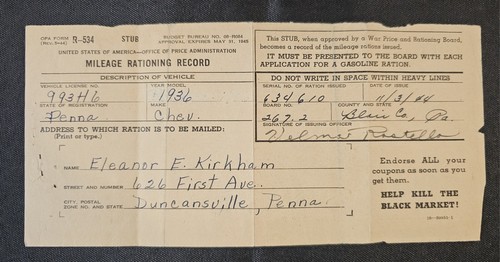 OPA FORM R-534 STUB BUDGET BUREAU NO. 08-R004
(Rev. 5-44) APPROVAL EXPIRES MAY 31, 1945
UNITED STATES OF AMERICA—OFFICE OF PRICE ADMINISTRATION
MILEAGE RATIONING RECORD
DESCRIPTION OF VEHICLE
VEHICLE LICENSE NO. YEAR MODEL
993H6 1936
STATE OF REGISTRATION MAKE
Penna Chev.
ADDRESS TO WHICH RATION IS TO BE MAILED:
(Print or type.)
NAME Eleanor E. Kirkham
STREET AND NUMBER 626 First Ave.
CITY, POSTAL ZONE NO. AND STATE Duncansville, Penna.
This STUB, when approved by a War Price and Rationing Board,
becomes a record of the mileage rations issued.
IT MUST BE PRESENTED TO THE BOARD WITH EACH
APPLICATION FOR A GASOLINE RATION.
DO NOT WRITE IN SPACE WITHIN HEAVY LINES
SERIAL NO. OF RATION ISSUED DATE
634610 11/3/44
BOARD NO. COUNTY AND STATE
267.2 Blair Co, Pa.
SIGNATURE OF ISSUING OFFICER
Velma
Endorse ALL your
coupons as soon as you
get them.
HELP KILL THE
BLACK MARKET!